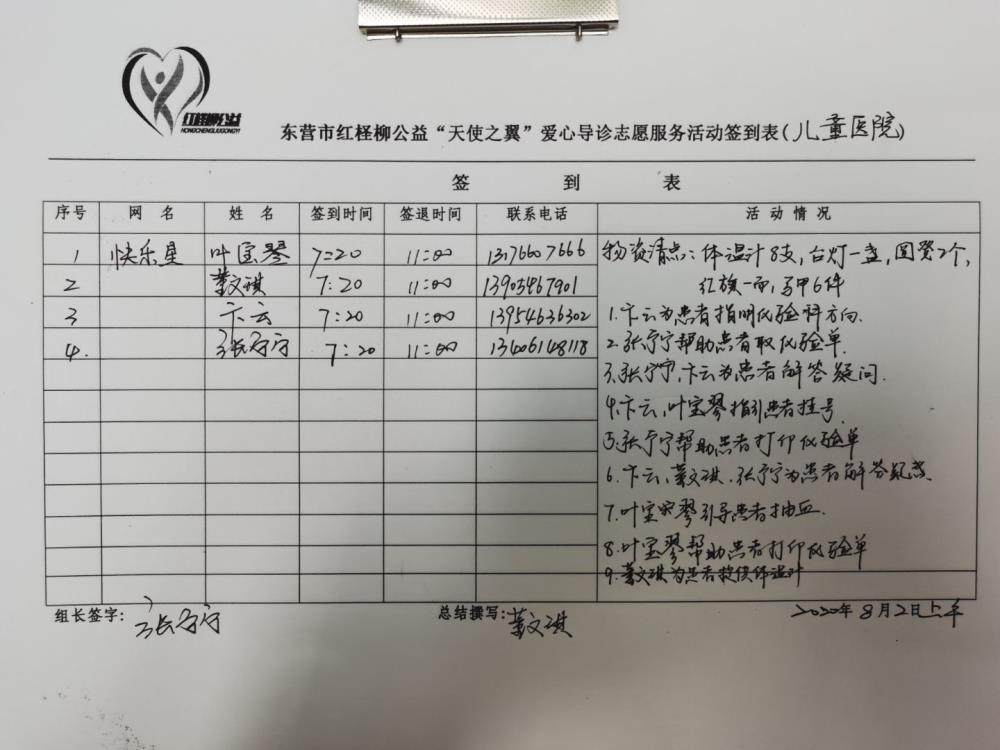 红柽柳公益
HONGCHENGLIUGONGYI
东营市红柽柳公益“天使之翼”爱心导诊志愿服务活动签到表(儿童医院)
签 到 表
序号 网 名 姓 名 签到时间 签退时间 联系电话 活 动 情 况
1 快乐星 叶宝琴 7:20 11:00 13176607666 物资清点:体温计8支,台灯一盏,圆凳2个,
2 董文琪 7:20 11:00 13903467901 红旗一面,马甲6件
3 卞云 7:20 11:00 13954636302 1.卞云为患者指明化验科方向.
4. 张宁宁 7:20 11:00 13406148118 2.张宁宁帮助患者取化验单.
3.张宁宁,卞云为患者解答疑问.
4.卞云,叶宝琴指引患者挂号.
5.张宁宁帮助患者打印化验单
6.卞云,董文琪.张宁宁为患者解答疑惑
7.叶宝琴引导患者抽血.
8.叶宝琴帮助患者打印化验单
9.董文琪为患者提供体温计
组长签字: 张宁宁 总结撰写: 董文琪 2020年8月2日上午